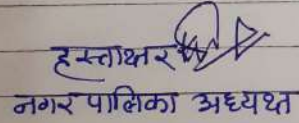 हस्ताक्षर
नगर पालिका अध्यक्ष